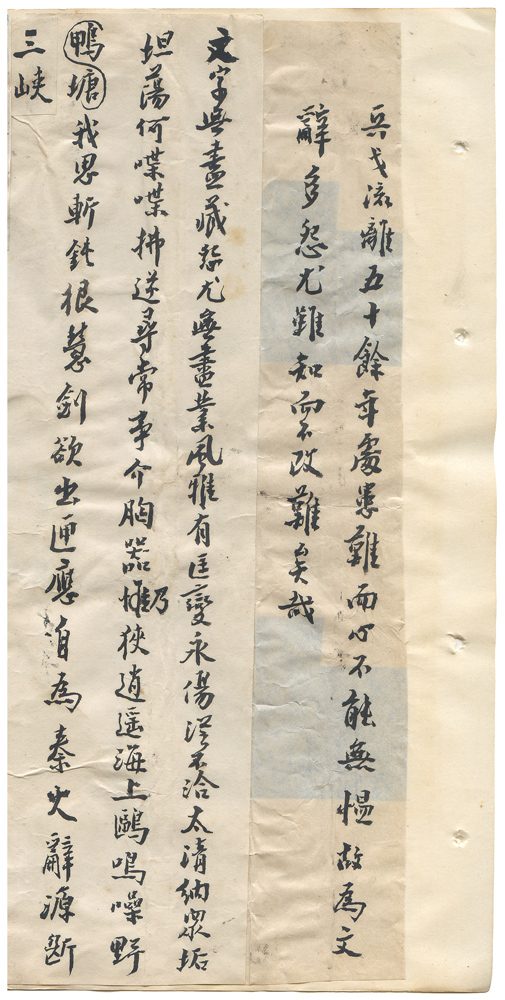 兵戈流離五十餘年處患難而心不能無愠故為文
辭多怨尤雖知而不改難矣哉
文字無盡藏怨尤無盡業風雅有匡變永傷涇不洽太清納眾垢
坦蕩何喋喋拂逆尋常事介胸器惟乃狹逍遥海上鷗鳴噪野
鴨塘我思斬鈍根慧劍欲出匣應自為秦火辭源斷
三峽